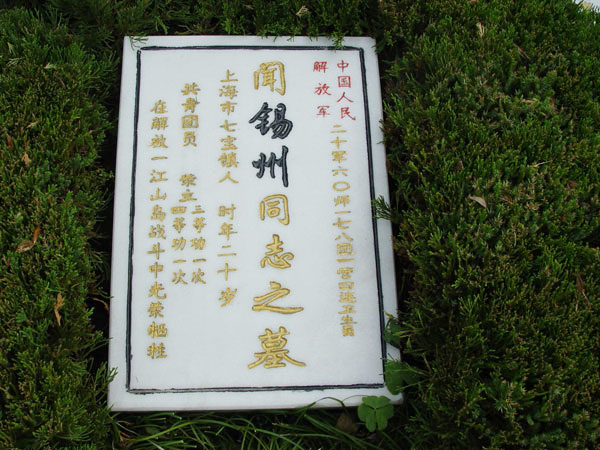 中国人民
解放军
二十军六〇师一七八团一营四连卫生员
闻锡州同志之墓
上海市七宝镇人 时年二十岁
共青团员 荣立 三等功一次
四等功一次
在解放一江山岛战斗中光荣牺牲